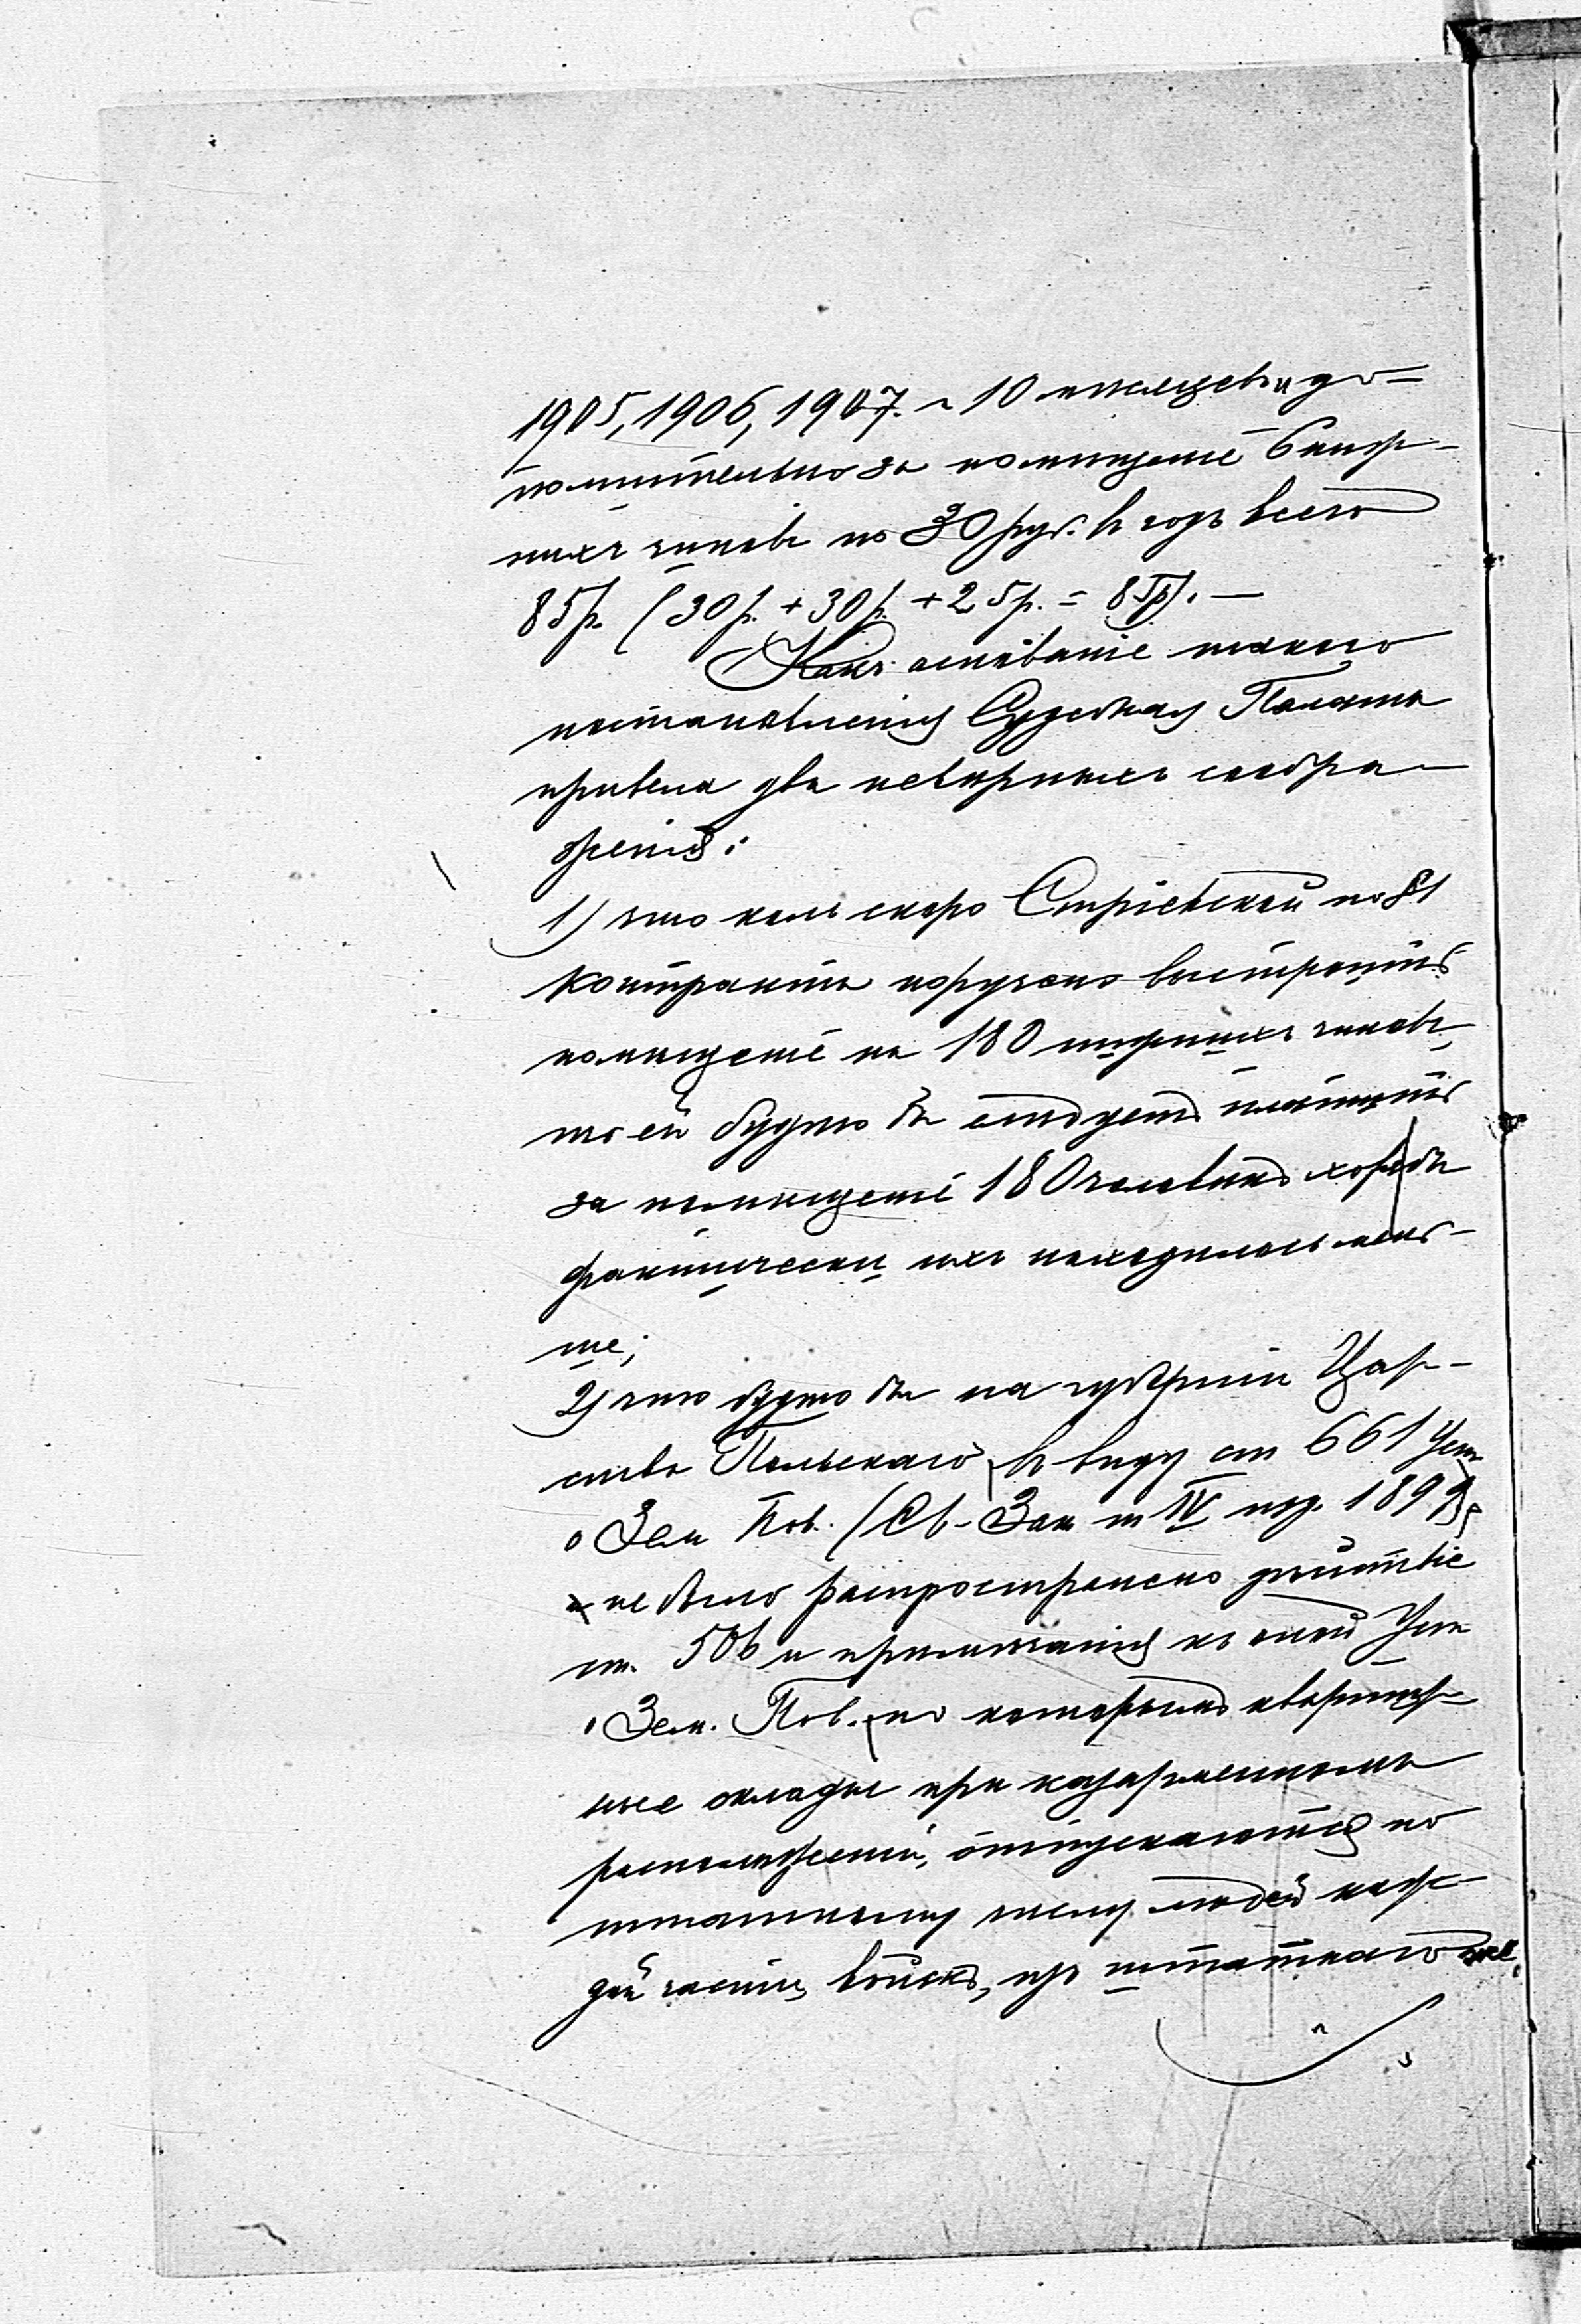 1905, 1906, 1907. и 10 месяцевъ и до-
полнительно за помѣщеніе 6 ниж-
нихъ чиновъ по 30 руб. въ годъ всего
85 р. (30 р. + 30 р. + 25 р. = 85 р). —
Какъ основаніе такого
постановленія Судебная Палата
привела два невѣрныхъ сообра-
женія:
1) что коль скоро Стріевской по § 1
контракта поручено выстроить
помѣщеніе на 180 нижнихъ чиновъ,
то ей будто бы слѣдуетъ платить
за помѣщеніе 180 человѣкъ хотя бы
фактически ихъ находилось мень-
ше;
2) что будто бы на губерніи Цар-
ства Польскаго, въ виду ст 661 Уст
о Зем Пов. (Св. Зак т IV изд. 1899)
не было распространено дѣйствіе
ст. 506 и примѣчанія къ оной Уст
о Зем. Пов. по которымъ квартир-
ные оклады при казарменномъ
расположеніи, отпускаются по
штатному числу людей каж-
дой части войскъ, изъ штатнаго же